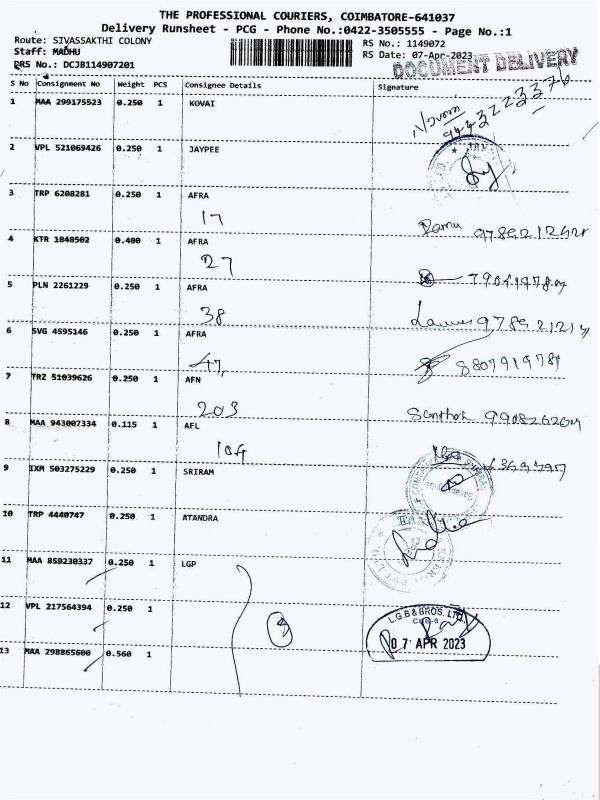 THE PROFESSIONAL COURIERS, COIMBATORE-641037
Delivery Runsheet - PCG - Phone No.:0422-3505555 - Page No.:1
Route: SIVASSAKTHI COLONY RS No.: 1149072
Staff: MADHU RS Date: 07-Apr-2023
DRS No.: DCJB114907201 DOCUMENT DELIVERY
S No Consignment No Weight PCS Consignee Details Signature
1 MAA 299175523 0.250 1 KOVAI
2 VPL 521069426 0.250 1 JAYPEE
3 TRP 6208281 0.250 1 AFRA
17 Ramu
4 KTR 1848502 0.480 1 AFRA
27
5 PLN 2261229 0.250 1 AFRA
38
6 SVG 4595146 0.250 1 AFRA
47
7 TRZ 51039626 0.250 1 AFN
203
8 MAA 943007334 0.115 1 AFL
104
9 IXM 503275229 0.250 1 SRIRAM
10 TRP 4440747 0.250 1 ATANDRA
11 MAA 859230337 0.250 1 LGP
12 VPL 217564394 0.250 1
L.G.B & BROS. LTD.
07 APR 2023
13 MAA 298865600 0.560 1